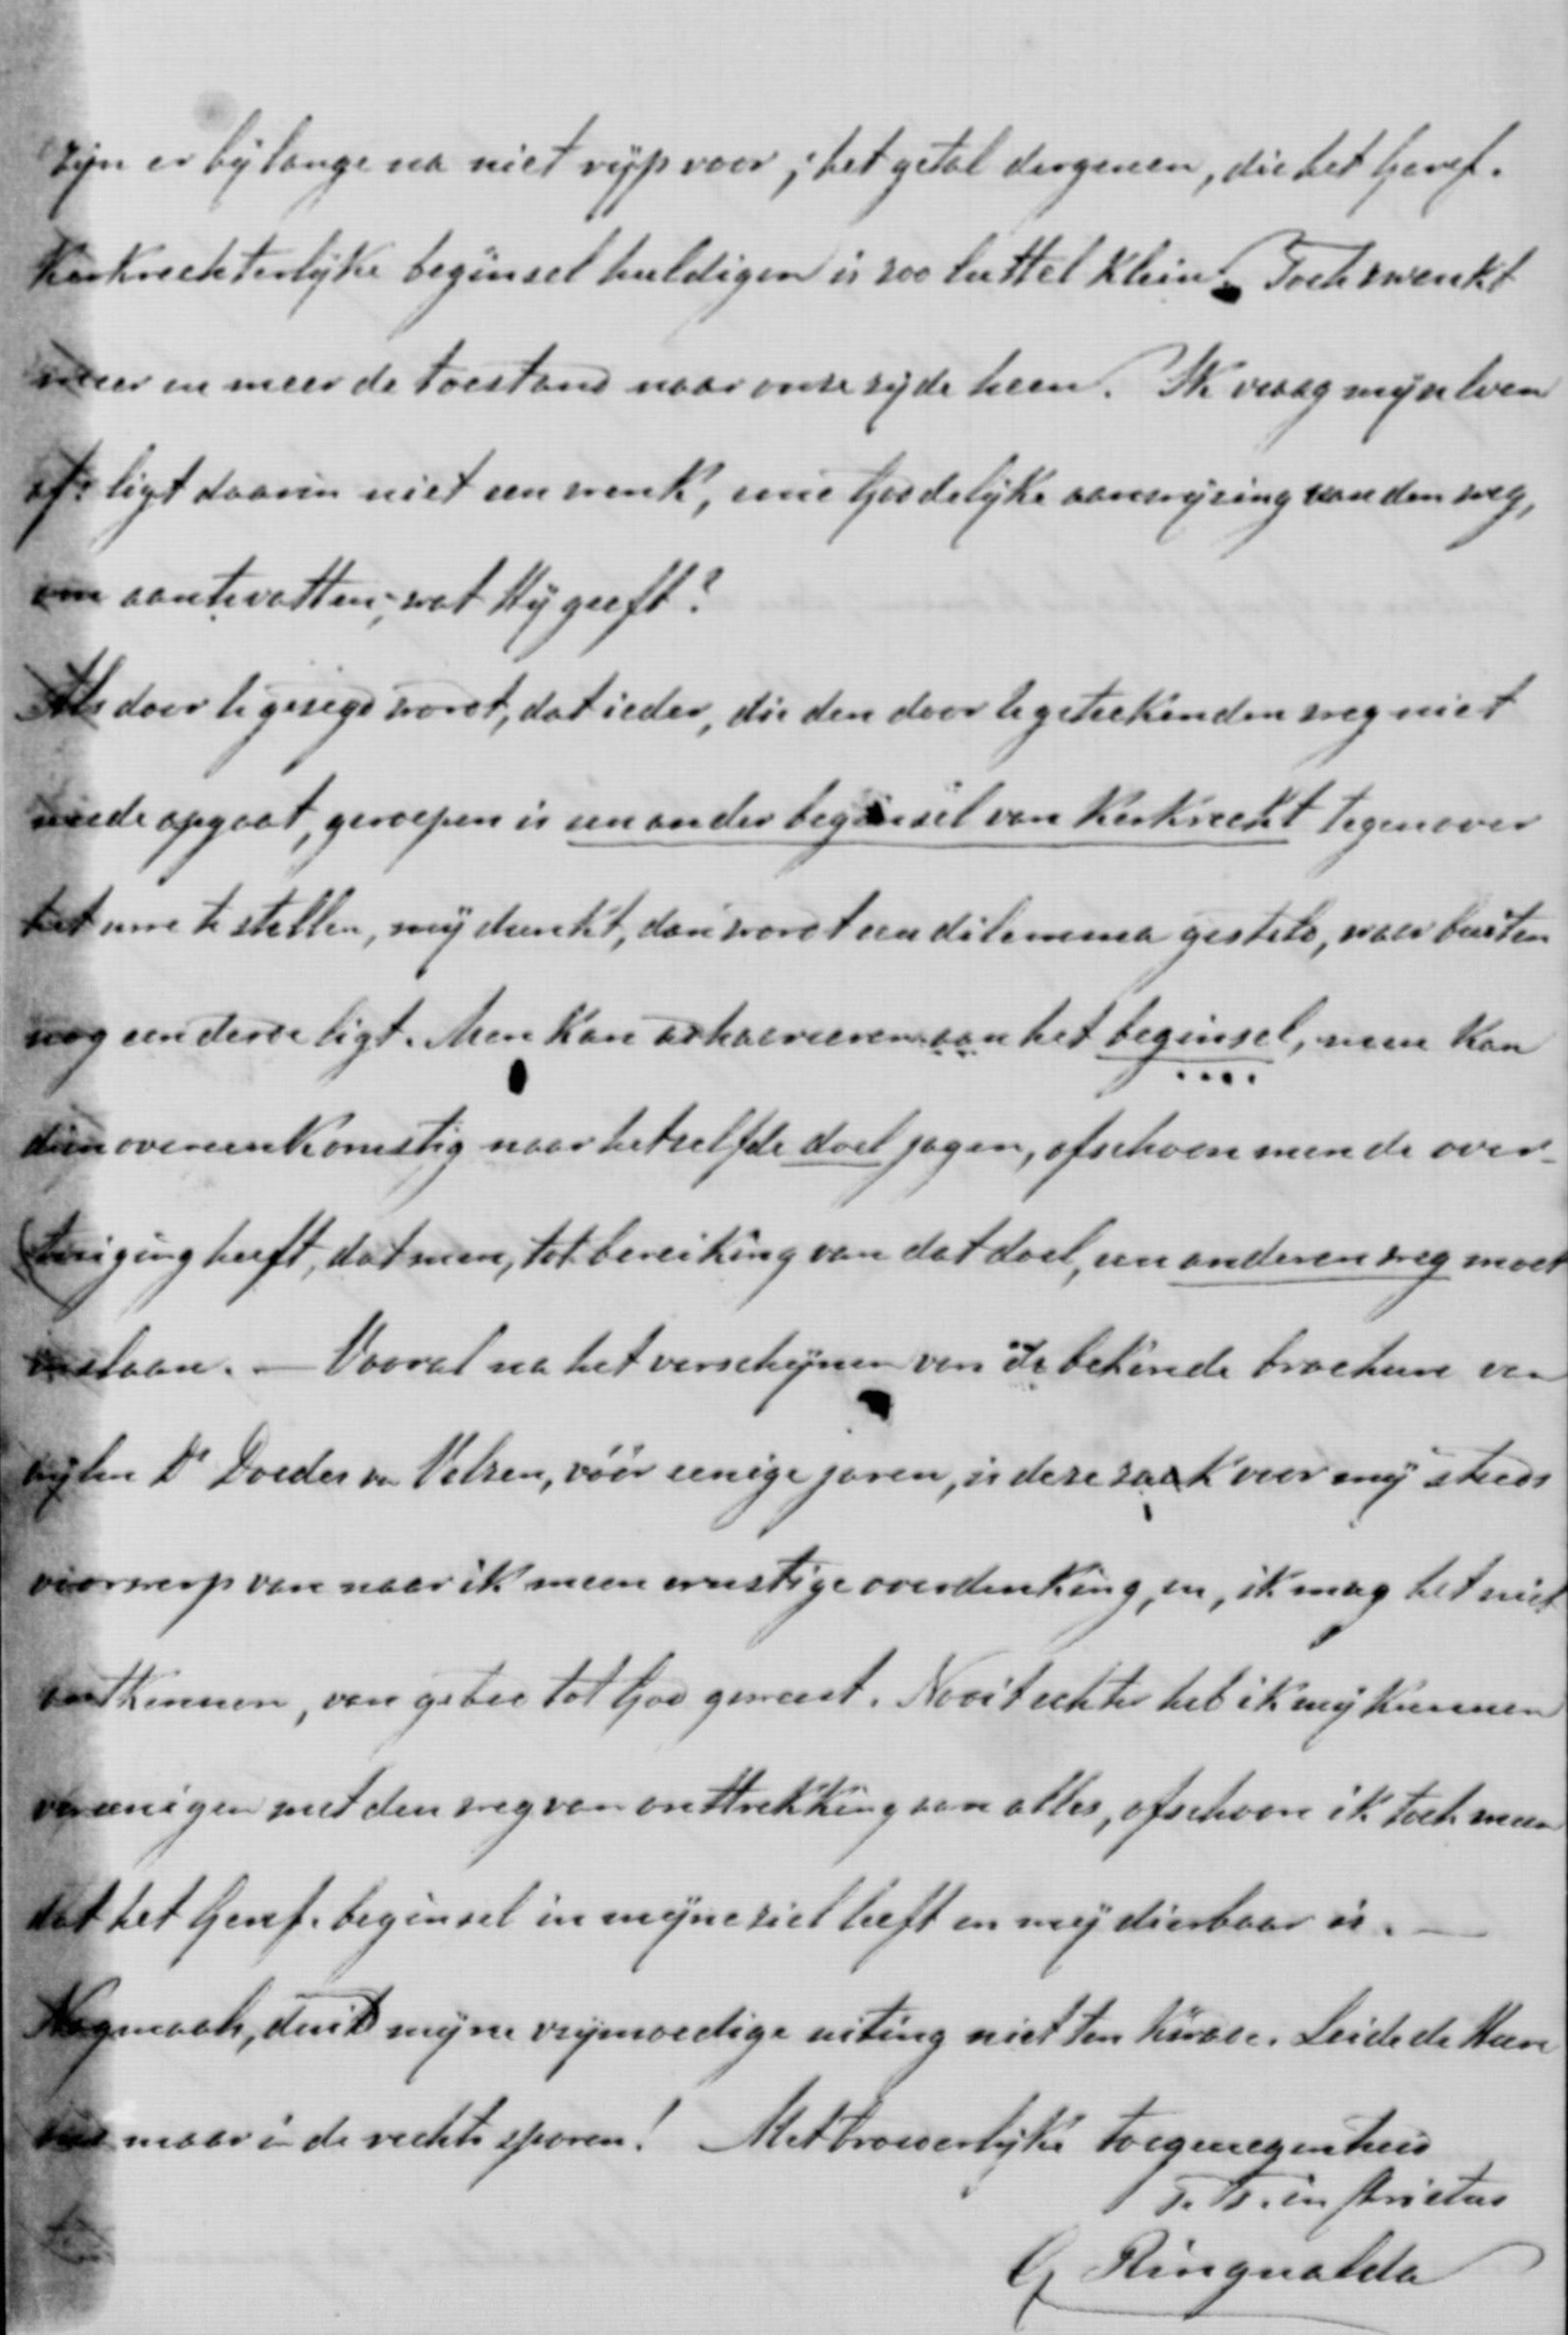 zijn er bij lange na niet rijp voor; het getal dergenen, die het Geref.
Kerkrechterlijke beginsel huldigen is zoo luttel klein. Toch zwenkt
meer en meer de toestand naar onze zijde heen. Ik vraag mijzelven
af: ligt daarin niet een wenk, eene Goddelijke aanwijzing van den weg,
om aantevatten, wat Hij geeft?
Als door U gezegd wordt, dat ieder, die den door U geteekenden weg niet
mede opgaat, geroepen is een ander beginsel van Kerkrecht tegenover
het uwe te stellen, mij dunkt, dan wordt een dilemma gesteld, waar buiten
nog een derde ligt. Men kan adhaereeren aan het beginsel, men kan
dienovereenkomstig naar hetzelfde doel jagen, ofschoon men de over-
tuiging heeft, dat men, tot bereiking van dat doel, een anderen weg moet
inslaan. — Vooral na het verschijnen van de bekende brochure van
wijlen Ds Doedes v. Velzen, vóór eenige jaren, is deze zaak voor mij steeds
voorwerp van naar ik meen ernstige overdenking, en, ik mag het niet
ontkennen, van gebed tot God geweest. Nooit echter heb ik mij kunnen
vereenigen met den weg van onttrekking aan alles, ofschoon ik toch meen
dat het Geref. beginsel in mijne ziel leeft en mij dierbaar is. —
Nogmaals, duid mijne vrijmoedige uiting niet ten kwade. Leide de Heere
ons maar in de rechte sporen! Met broederlijke toegenegenheid
T. T. in Christus
G Ringnalda